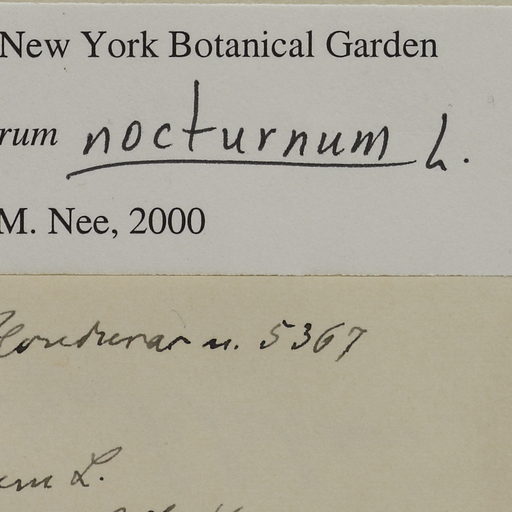 New York Botanical Garden
rum nocturnum L.
M. Nee, 2000
Honduras n. 5367
um L.